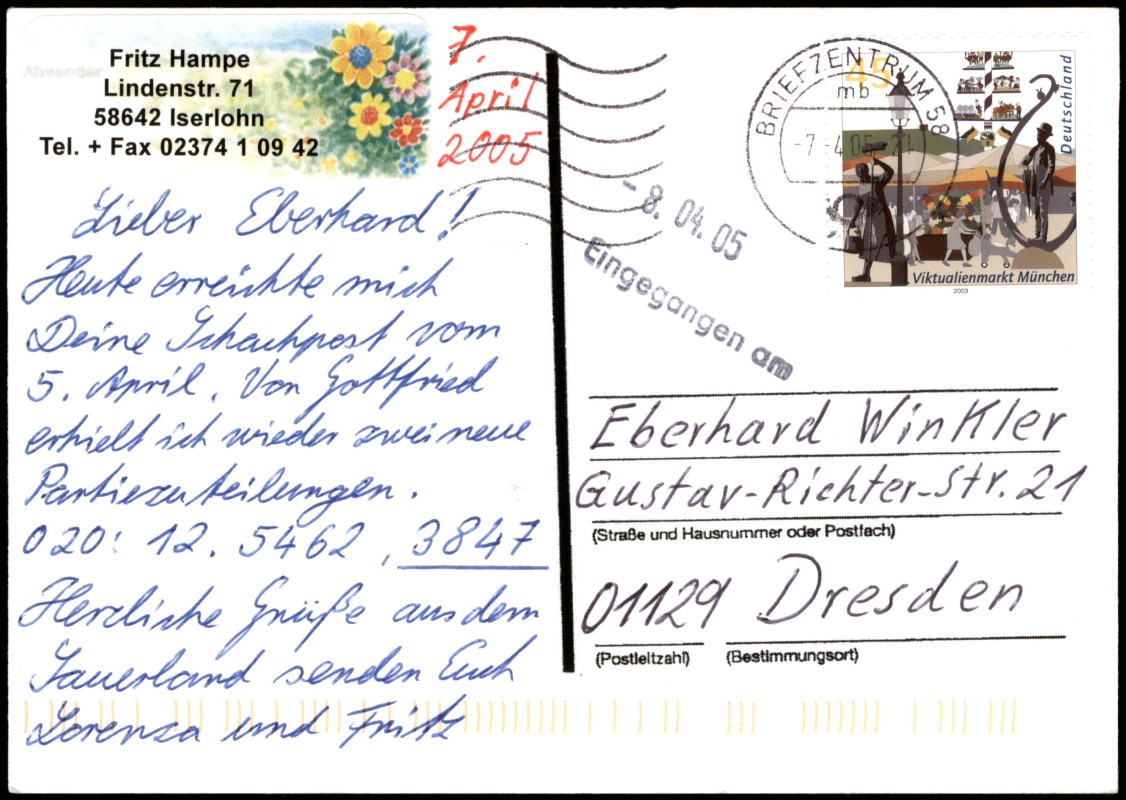 Absender
Fritz Hampe
Lindenstr. 71
58642 Iserlohn
Tel. + Fax 02374 1 09 42
7.
April
2005
Lieber Eberhard!
Heute erreichte mich
Deine Schachpost vom
5. April. Von Gottfried
erhielt ich wieder zwei neue
Partiezuteilungen.
020: 12. 5462, 3847
Herzliche Grüße aus dem
Sauerland senden Euch
Lorenza und Fritz
BRIEFZENTRUM 58
mb
-7.-4.05-21
45
Deutschland
Viktualienmarkt München
2003
-8. 04. 05
Eingegangen am
Eberhard Winkler
Gustav-Richter-Str. 21
(Straße und Hausnummer oder Postfach)
01129 Dresden
(Postleitzahl) (Bestimmungsort)